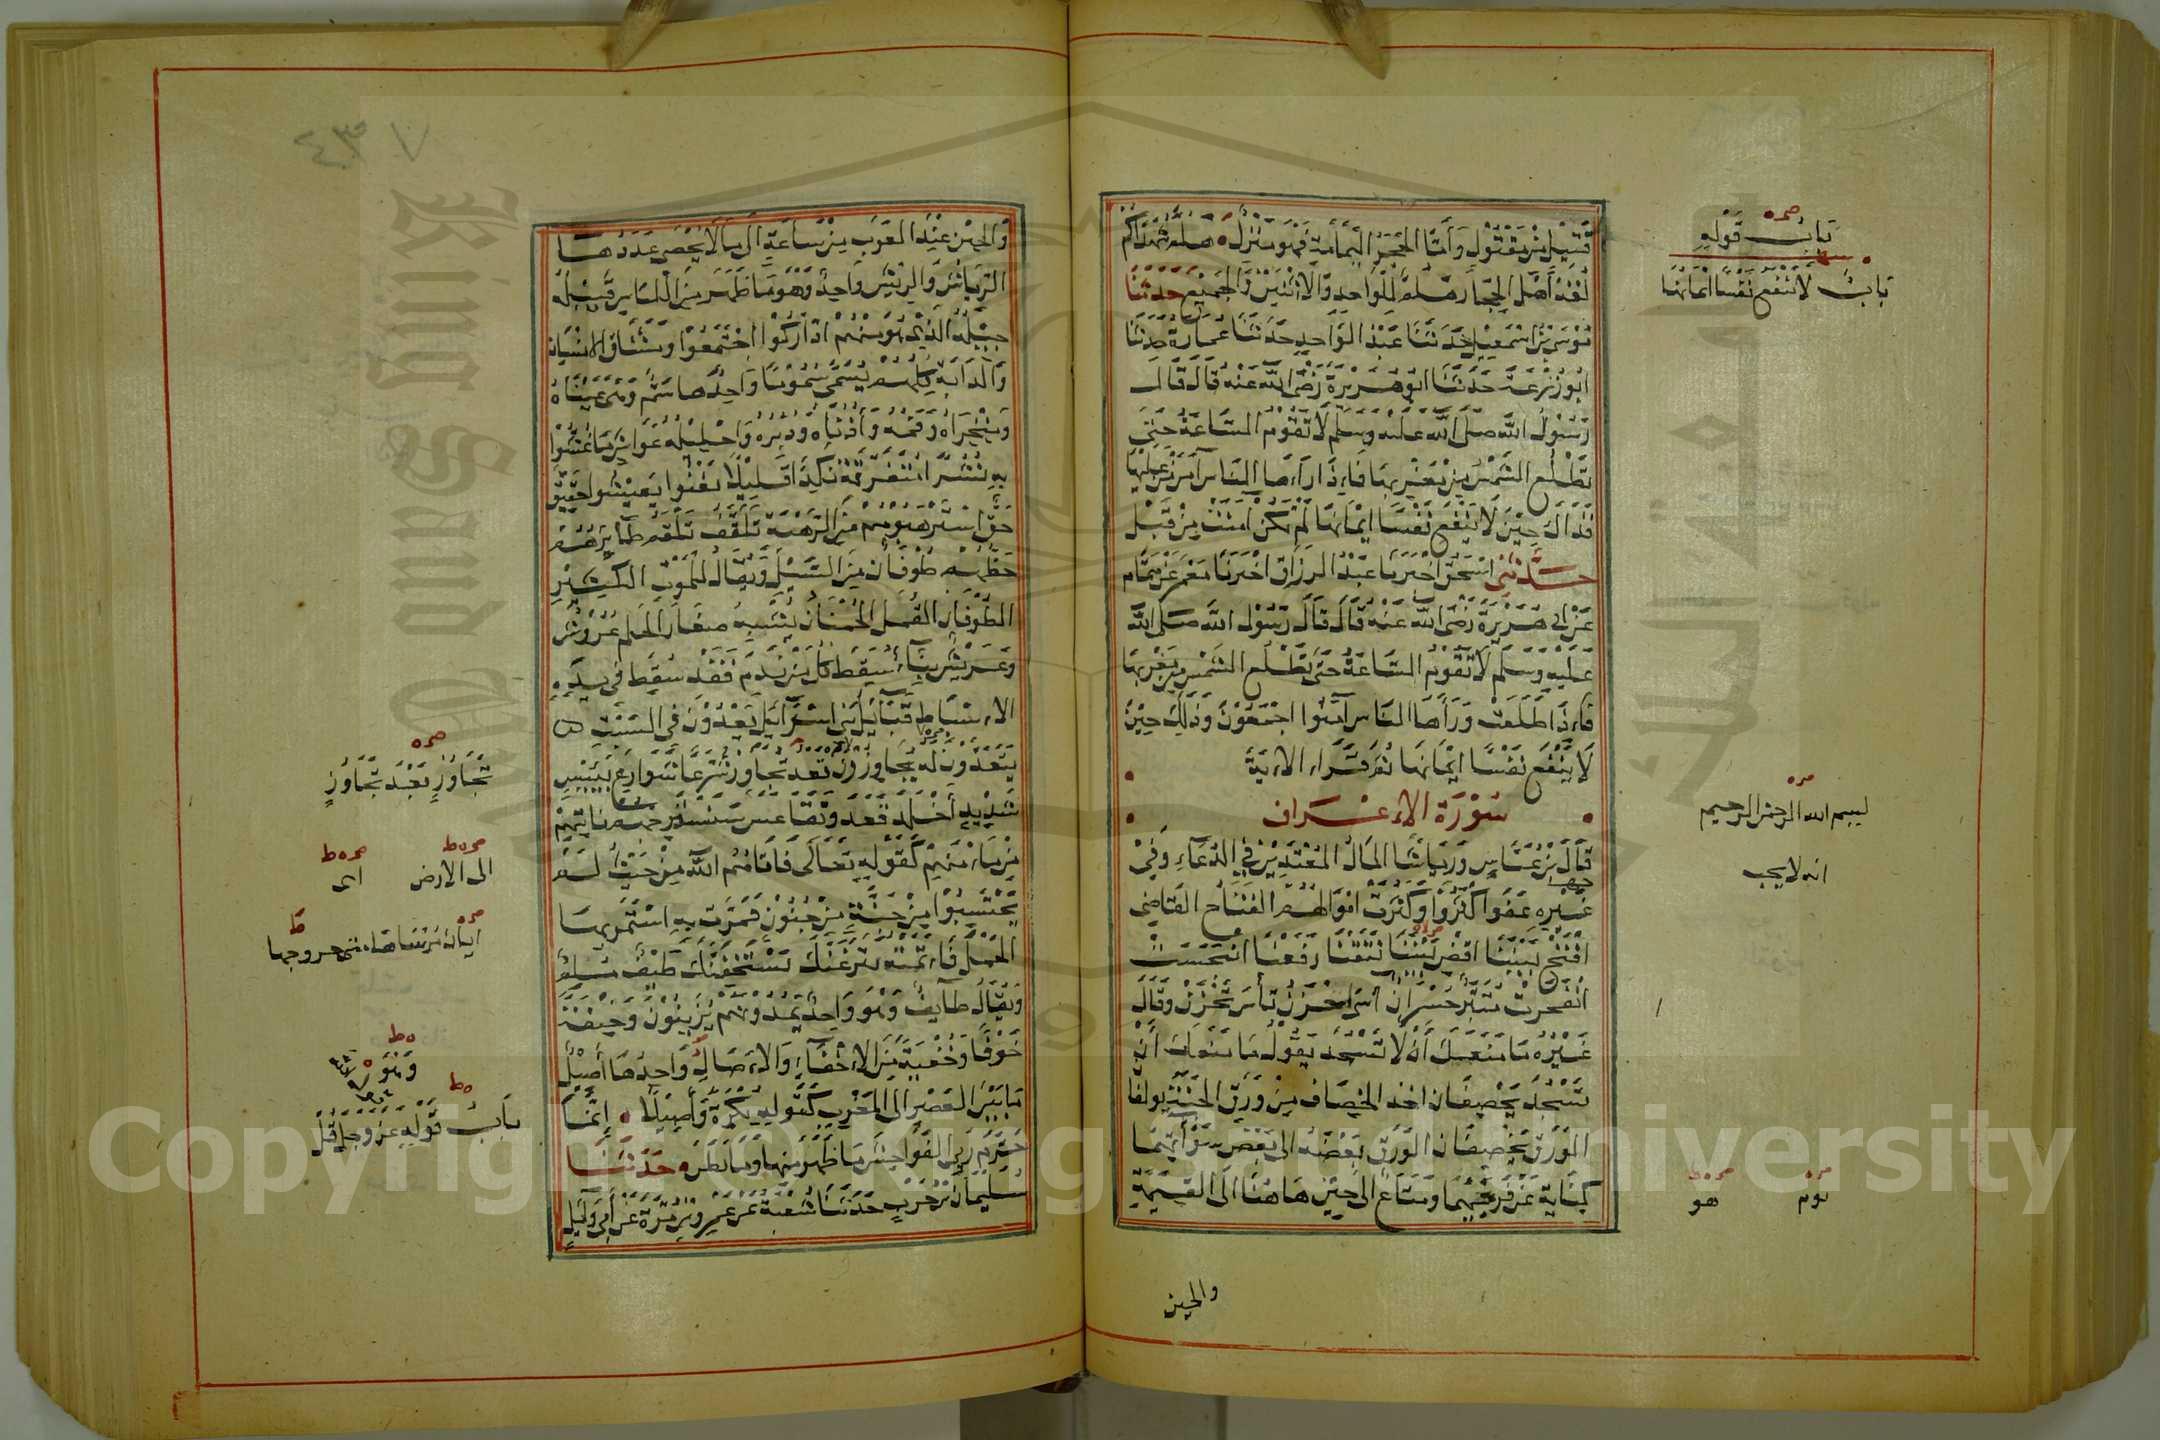 قَتِيْل مِنْ مَقْتُوْل وَاَمَّا الْحَجَرُ الْيَمَامَةِ فَهُوَ مَنْزِلٌ هَلُمَّ شُهَدَاءَكُمْ
لُغَةُ اَهْلِ الْحِجَازِ هَلُمَّ لِلْوَاحِدِ وَالْاِثْنَيْنِ وَالْجَمِيْعِ حَدَّثَنَا
مُوْسَى بْنُ اِسْمٰعِيْلَ حَدَّثَنَا عَبْدُ الْوَاحِدِ حَدَّثَنَا عُمَارَةُ حَدَّثَنَا
اَبُوْ زُرْعَةَ حَدَّثَنَا اَبُوْ هُرَيْرَةَ رَضِيَ اللّٰهُ عَنْهُ قَالَ قَالَ
رَسُوْلُ اللّٰهِ صَلَّى اللّٰهُ عَلَيْهِ وَسَلَّمَ لَا تَقُوْمُ السَّاعَةُ حَتّٰى
تَطْلُعَ الشَّمْسُ مِنْ مَغْرِبِهَا فَاِذَا رَاٰهَا النَّاسُ اٰمَنَ مَنْ عَلَيْهَا
فَذَاكَ حِيْنَ لَا يَنْفَعُ نَفْسًا اِيْمَانُهَا لَمْ تَكُنْ اٰمَنَتْ مِنْ قَبْلُ
حَدَّثَنِي اِسْحٰقُ اَخْبَرَنَا عَبْدُ الرَّزَّاقِ اَخْبَرَنَا مَعْمَرٌ عَنْ هَمَّامٍ
عَنْ اَبِيْ هُرَيْرَةَ رَضِيَ اللّٰهُ عَنْهُ قَالَ قَالَ رَسُوْلُ اللّٰهِ صَلَّى اللّٰهُ
عَلَيْهِ وَسَلَّمَ لَا تَقُوْمُ السَّاعَةُ حَتّٰى تَطْلُعَ الشَّمْسُ مِنْ مَغْرِبِهَا
فَاِذَا طَلَعَتْ وَرَاٰهَا النَّاسُ اٰمَنُوْا اَجْمَعُوْنَ وَذٰلِكَ حِيْنَ
لَا يَنْفَعُ نَفْسًا اِيْمَانُهَا ثُمَّ قَرَاَ الْاٰيَةَ
سُوْرَةُ الْاَعْرَافِ
قَالَ ابْنُ عَبَّاسٍ وَرِيَاشًا الْمَالُ الْمُعْتَدِيْنَ فِي الدُّعَاءِ وَفِيْ
غَيْرِهِ عَفَوْا كَثُرُوْا وَكَثُرَتْ اَمْوَالُهُمْ الْفَتَّاحُ الْقَاضِي
اِفْتَحْ بَيْنَنَا اقْضِ بَيْنَنَا نَتَقْنَا رَفَعْنَا انْبَجَسَتْ
انْفَجَرَتْ مُتَبَّرٌ خُسْرَانٌ اٰسٰى اَحْزَنُ تَاْسَ تَحْزَنْ وَقَالَ
غَيْرُهُ مَا مَنَعَكَ اَنْ لَا تَسْجُدَ يَقُوْلُ مَا مَنَعَكَ اَنْ
تَسْجُدَ يَخْصِفَانِ اَخَذَا الْخِصَافَ مِنْ وَرَقِ الْجَنَّةِ يُؤَلِّفَانِ
الْوَرَقَ يَخْصِفَانِ الْوَرَقَ بَعْضَهُ اِلٰى بَعْضٍ سَوْاٰتِهِمَا
كِنَايَةٌ عَنْ فَرْجَيْهِمَا وَمَتَاعٌ اِلٰى حِيْنٍ هَاهُنَا اِلَى الْقِيٰمَةِ
والحين
بَابُ قَوْلِهِ
بَابُ لَا يَنْفَعُ نَفْسًا اِيْمَانُهَا
بسم الله الرحمن الرحيم
انه لا يحب
يوم هو
وَالْحِيْنُ عِنْدَ الْعَرَبِ مِنْ سَاعَةٍ اِلٰى مَا لَا يُحْصٰى عَدَدُهَا
الرِّيَاشُ وَالرِّيْشُ وَاحِدٌ وَهُوَ مَا ظَهَرَ مِنَ اللِّبَاسِ قَبِيْلُهُ
جِيْلُهُ الَّذِيْ هُوَ مِنْهُمْ ادَّارَكُوْا اجْتَمَعُوْا وَمَشَاقُّ الْاِنْسَانِ
وَالدَّابَّةِ كُلُّهُمْ يُسَمّٰى سُمُوْمًا وَاحِدُهَا سَمٌّ وَهِيَ عَيْنَاهُ
وَمَنْخِرَاهُ وَفَمُهُ وَاُذُنَاهُ وَدُبُرُهُ وَاِحْلِيْلُهُ غَوَاشٍ مَا غُشُّوْا
بِهِ نُشُرًا مُتَفَرِّقَةً نَكِدًا قَلِيْلًا يَغْنَوْا يَعِيْشُوا حَقِيْقٌ
حَقٌّ اسْتَرْهَبُوْهُمْ مِنَ الرَّهْبَةِ تَلَقَّفُ تَلْقَمُ طَائِرُهُمْ
حَظُّهُمْ طُوْفَانٌ مِنَ السَّيْلِ وَيُقَالُ لِلْمَوْتِ الْكَثِيْرِ
الطُّوْفَانُ الْقُمَّلُ الْحُمْنَانُ يُشْبِهُ صِغَارَ الْحَلَمِ عُرُوْشٌ
وَعَرِيْشٌ بِنَاءٌ سُقِطَ كُلُّ مَنْ نَدِمَ فَقَدْ سُقِطَ فِي يَدِهِ
الْاَسْبَاطُ قَبَائِلُ بَنِي اِسْرَائِيْلَ يَعْدُوْنَ فِي السَّبْتِ
يَتَعَدَّوْنَ لَهُ يُجَاوِزُوْنَ تَعْدُ تُجَاوِزْ شُرَّعًا شَوَارِعَ بَئِيْسٍ
شَدِيْدٍ اَخْلَدَ قَعَدَ وَتَقَاعَسَ سَنَسْتَدْرِجُهُمْ نَاْتِيْهِمْ
مِنْ مَاْمَنِهِمْ كَقَوْلِهِ تَعَالٰى فَاَتَاهُمُ اللّٰهُ مِنْ حَيْثُ لَمْ
يَحْتَسِبُوْا مِنْ جِنَّةٍ مِنْ جُنُوْنٍ فَمَرَّتْ بِهِ اسْتَمَرَّ بِهَا
الْحَمْلُ فَاَتَمَّتْهُ يَنْزَغَنَّكَ يَسْتَخِفَّنَّكَ طَيْفٌ مُلِمٌّ
وَيُقَالُ طَائِفٌ وَهُوَ وَاحِدٌ يَمُدُّوْنَهُمْ يُزَيِّنُوْنَ وَخِيْفَةً
خَوْفًا وَخُفْيَةً مِنَ الْاِخْفَاءِ وَالْاٰصَالُ وَاحِدُهَا اَصِيْلٌ
مَا بَيْنَ الْعَصْرِ اِلَى الْمَغْرِبِ كَقَوْلِهِ بُكْرَةً وَاَصِيْلًا اِنَّمَا
حَرَّمَ رَبِّيَ الْفَوَاحِشَ مَا ظَهَرَ مِنْهَا وَمَا بَطَنَ حَدَّثَنَا
سُلَيْمَانُ بْنُ حَرْبٍ حَدَّثَنَا شُعْبَةُ عَنْ عَمْرِو بْنِ مُرَّةَ عَنْ اَبِيْ وَائِلٍ
تَجَاوُزٍ بَعْدَ تَجَاوُزٍ
الى الارض اى
ايان مرساها متى خروجها
وَهُوَ
بَابُ قَوْلِهِ عَزَّ وَجَلَّ قُلْ
King Saud University
Copyright © King Saud University